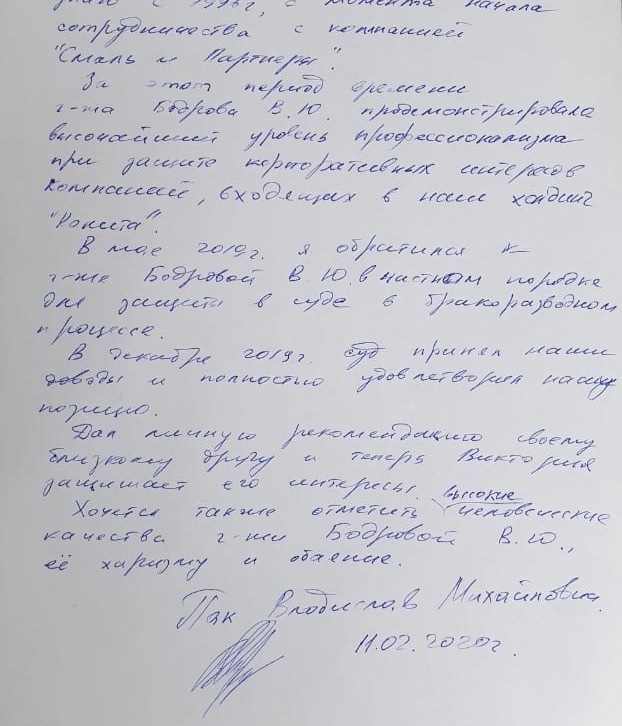 знаю с 199 г, с момента начала
сотрудничества с компанией
"Смаль и Партнеры".
За этот период времени
г-жа Бодрова В.Ю. продемонстрировала
высочайший уровень профессионализма
при защите корпоративных интересов
компаний, входящих в наш холдинг
"Ракита".
В мае 2019г. я обратился к
г-же Бодровой В.Ю. в частном порядке
для защиты в суде в бракоразводном
процессе.
В декабре 2019г. суд принял наши
доводы и полностью удовлетворил нашу
позицию.
Дал личную рекомендацию своему
близкому другу и теперь Виктория
защищает его интересы.
Хочется также отметить высокие человеческие
качества г-жи Бодровой В.Ю.,
её харизму и обаяние.
Пак Владислав Михайлович
11.02.2020г.